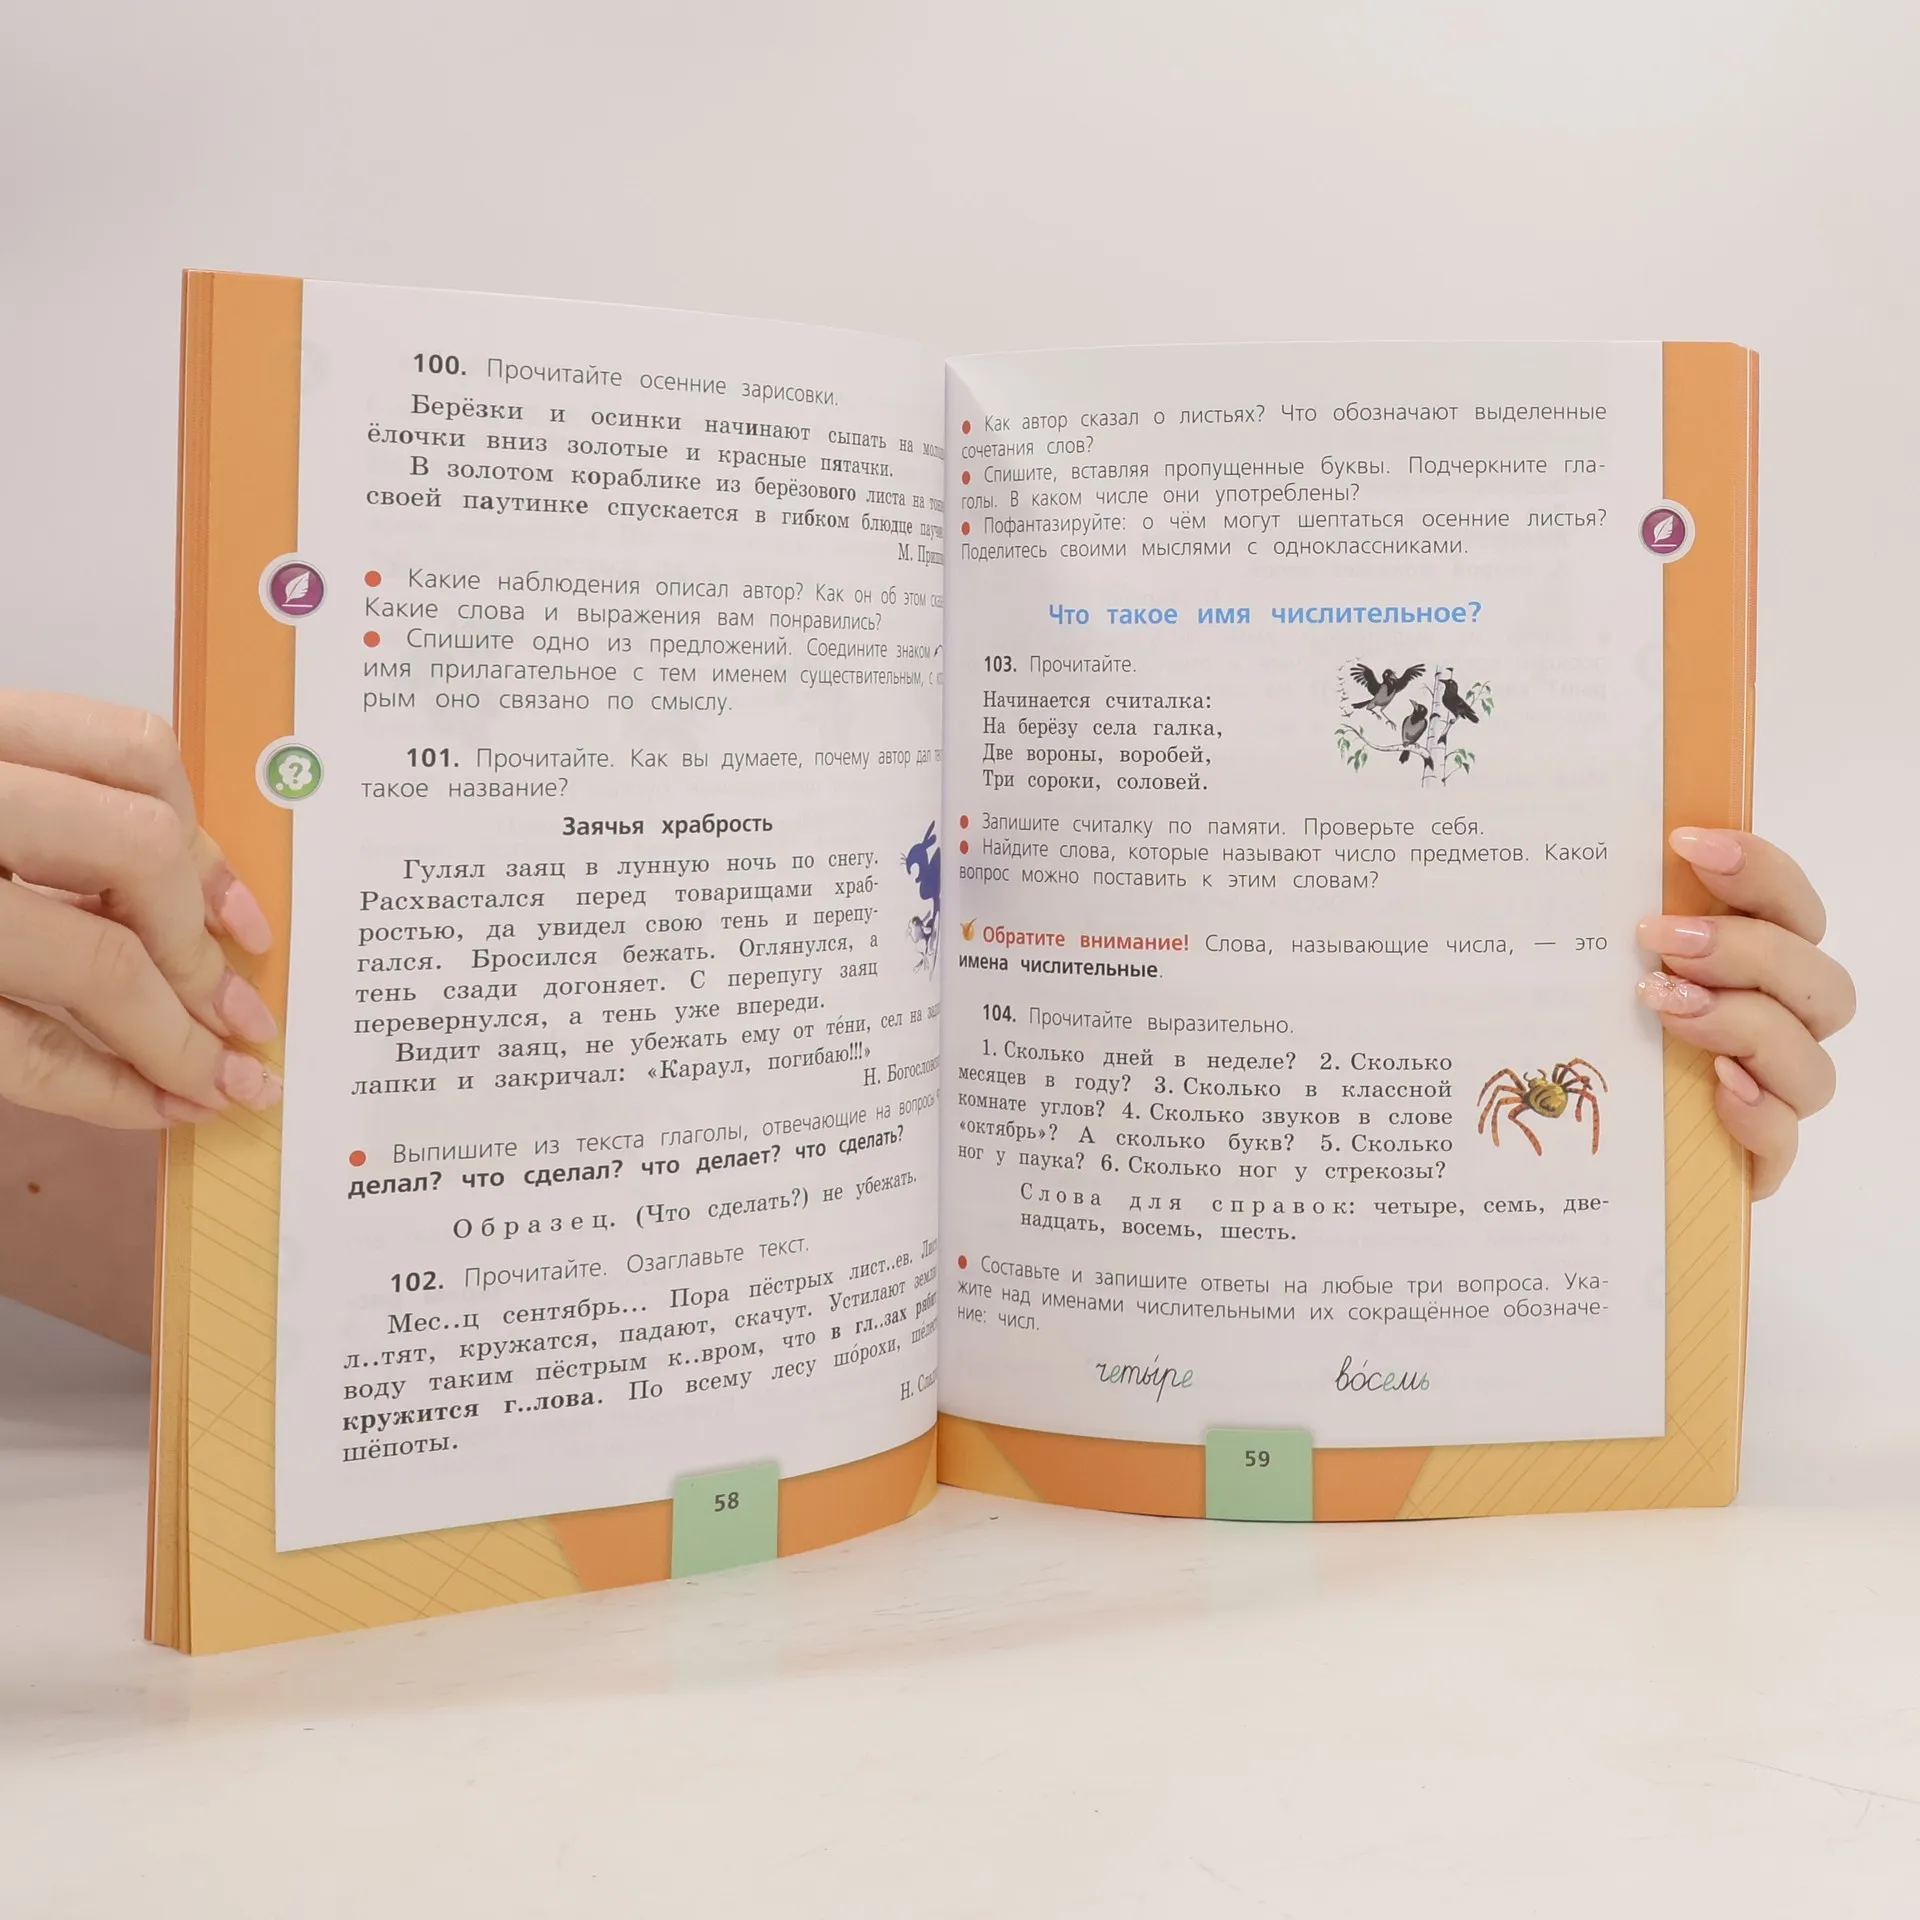 100. Прочитайте осенние зарисовки.
Берёзки и осинки начинают сыпать на
ёлочки вниз золотые и красные пятачки.
В золотом кораблике из берёзового листа на
своей паутинке спускается в гибком блюдце
М.
Какие наблюдения описал автор? Как он об этом
Какие слова и выражения вам понравились?
Спишите одно из предложений. Соедините знаком
имя прилагательное с тем именем существительным, с
рым оно связано по смыслу.
101. Прочитайте. Как вы думаете, почему автор дал
такое название?
Заячья храбрость
Гулял заяц в лунную ночь по снегу.
Расхвастался перед товарищами храб-
ростью, да увидел свою тень и перепу-
гался. Бросился бежать. Оглянулся, а
тень сзади догоняет. С перепугу заяц
перевернулся, а тень уже впереди.
Видит заяц, не убежать ему от те́ни, сел на
лапки и закричал: «Караул, погибаю!!!»
Н.
Выпишите из текста глаголы, отвечающие на вопросы
делал? что сделал? что делает? что сделать?
Образец. (Что сделать?) не убежать.
102. Прочитайте. Озаглавьте текст.
Мес..ц сентябрь... Пора пёстрых лист..ев.
л..тят, кружатся, падают, скачут. Устилают
воду таким пёстрым к..вром, что в гл..зах
кружится г..лова. По всему лесу шо́рохи,
шёпоты.
Н.
58
Как автор сказал о листьях? Что обозначают выделенные
сочетания слов?
Спишите, вставляя пропущенные буквы. Подчеркните гла-
голы. В каком числе они употреблены?
Пофантазируйте: о чём могут шептаться осенние листья?
Поделитесь своими мыслями с одноклассниками.
Что такое имя числительное?
103. Прочитайте.
Начинается считалка:
На берёзу села галка,
Две вороны, воробей,
Три сороки, соловей.
Запишите считалку по памяти. Проверьте себя.
Найдите слова, которые называют число предметов. Какой
вопрос можно поставить к этим словам?
Обратите внимание! Слова, называющие числа, — это
имена числительные.
104. Прочитайте выразительно.
1. Сколько дней в неделе? 2. Сколько
месяцев в году? 3. Сколько в классной
комнате углов? 4. Сколько звуков в слове
«октябрь»? А сколько букв? 5. Сколько
ног у паука? 6. Сколько ног у стрекозы?
Слова для справок: четыре, семь, две-
надцать, восемь, шесть.
Составьте и запишите ответы на любые три вопроса. Ука-
жите над именами числительными их сокращённое обозначе-
ние: числ.
четы́ре во́семь
59